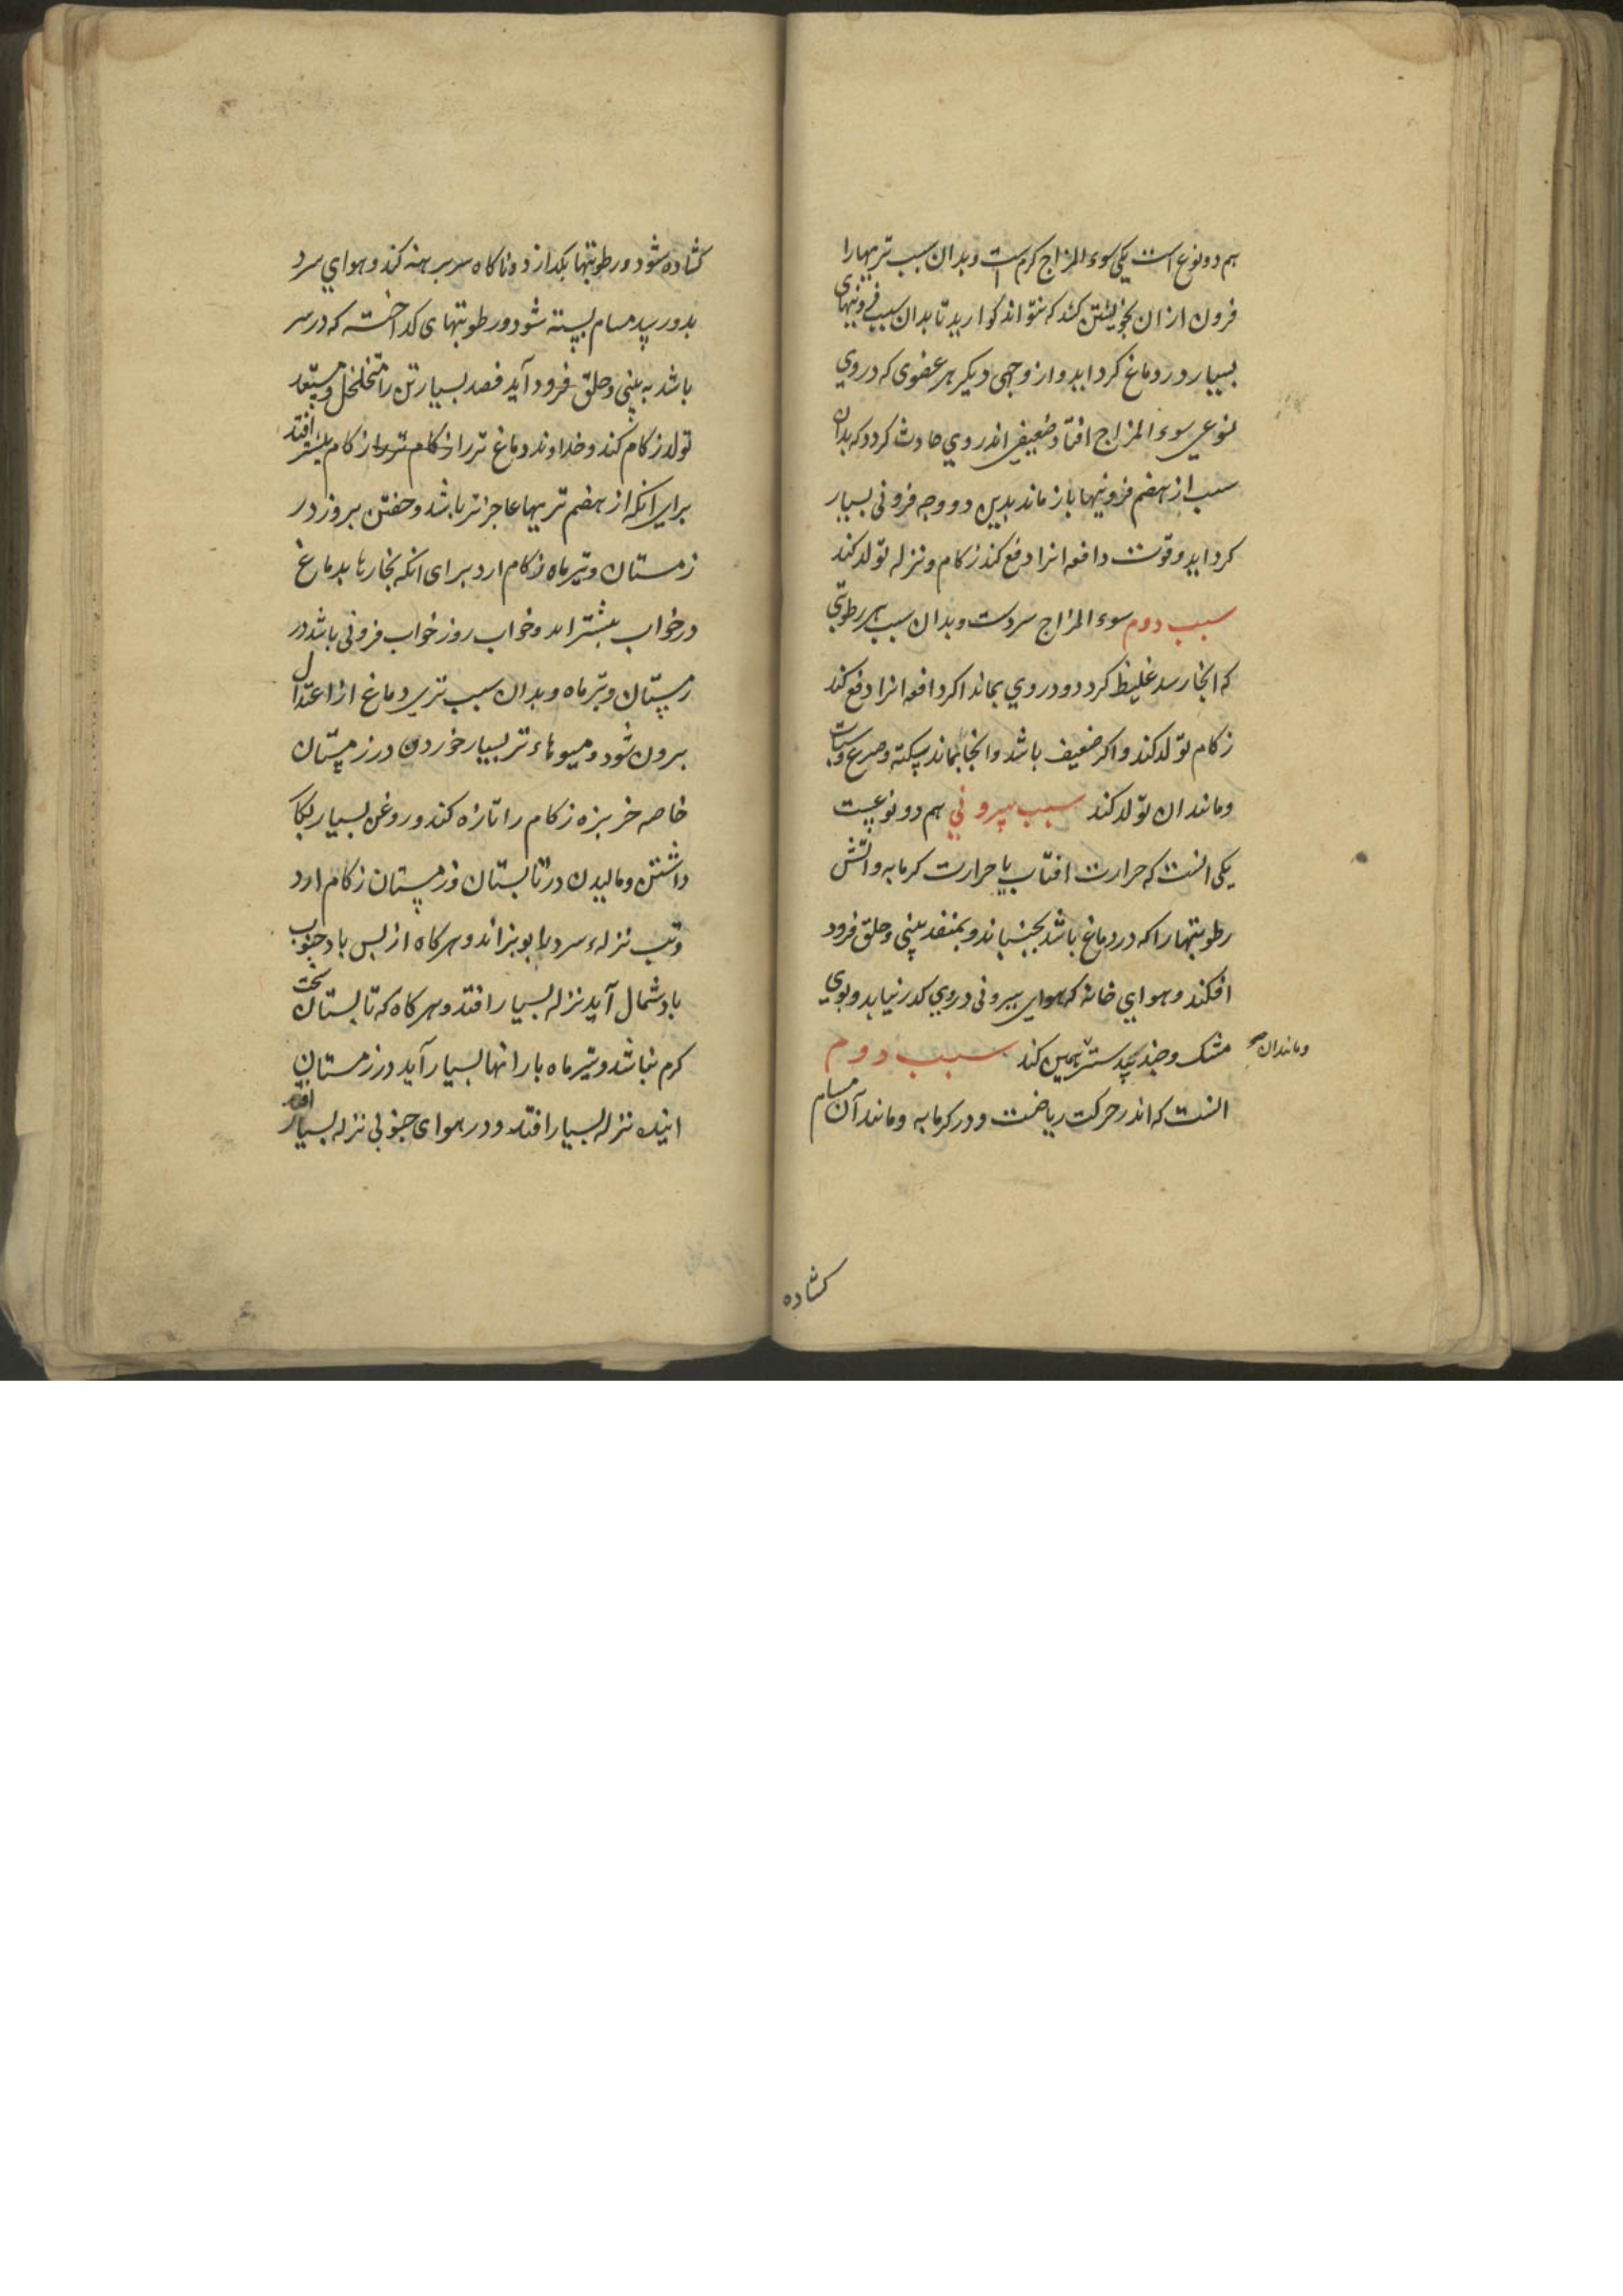 هم دو نوع است یکی سوء المزاج کرم است و بدان سبب تریهارا
فزون ازان بخویشتن کشد که بتواند کوارید تا بدان سبب فزونیهای
بسیار در دماغ کرد اید و از وجهی دیکر هر عضوی که در وی
نوعی سوء المزاج افتاد ضعیفی اندر وی حادث کردد که بدان
سبب از هضم فزونیها باز ماند بدین دو وجه فزونی بسیار
کرد اید و قوت دافعه انرا دفع کند زکام و نزله تولد کند
سبب دوم سوء المزاج سردست و بدان سبب هر رطوبتی
که انجا رسد غلیظ کردد و در وی بماند اکر دافعه انرا دفع کند
زکام تولد کند و اکر ضعیف باشد و انجا بماند سکته و صرع و سبات
و مانند ان تولد کند سبب بیرونی هم دو نوعیست
یکی انست که حرارت افتاب یا حرارت کرمابه و اتش
رطوبتهارا که در دماغ باشد بجنباند و بمنفذ بینی و حلق فرود
افکند و هوای خانه که هوای بیرونی در وی کدر نیابد و بوی
مشک و جند بیدستر همین کند سبب دوم
و مانند ان صح
انست که اندر حرکت ریاضت و در کرمابه و مانند آن مسام
کشاده
کشاده شود و رطوبتها بکدازد و ناکاه سر برهنه کند و هوای سرد
بدو رسد مسام بسته شود و رطوبتهای کداخته که در سر
باشد به بینی و حلق فرود آید فصد بسیار تن را متخلخل و مستعد
تولد زکام کند و خداوند دماغ تر را زکام تر را زکام بیشتر افتد
برای انکه از هضم تریها عاجزتر باشد و خفتن بروز در
زمستان و تیرماه زکام ارد برای انکه بخارها بدماغ
در خواب بیشتر اید و خواب روز خواب فزونی باشد در
زمستان و تیرماه و بدان سبب تری دماغ از اعتدال
برون شود و میوهاء تر بسیار خوردن در زمستان
خاصه خربزه زکام را تازه کند و روغن بسیار بکار
داشتن و مالیدن در تابستان و زمستان زکام ارد
و تب نزلهء سرد را بوبزاند و هرکاه از پس باد جنوب
باد شمال آید نزله بسیار افتد و هرکاه که تابستان سخت
کرم نباشد و تیرماه بارانها بسیار آید در زمستان
اینده نزله بسیار افتد و در هوای جنوبی نزله بسیار افتد